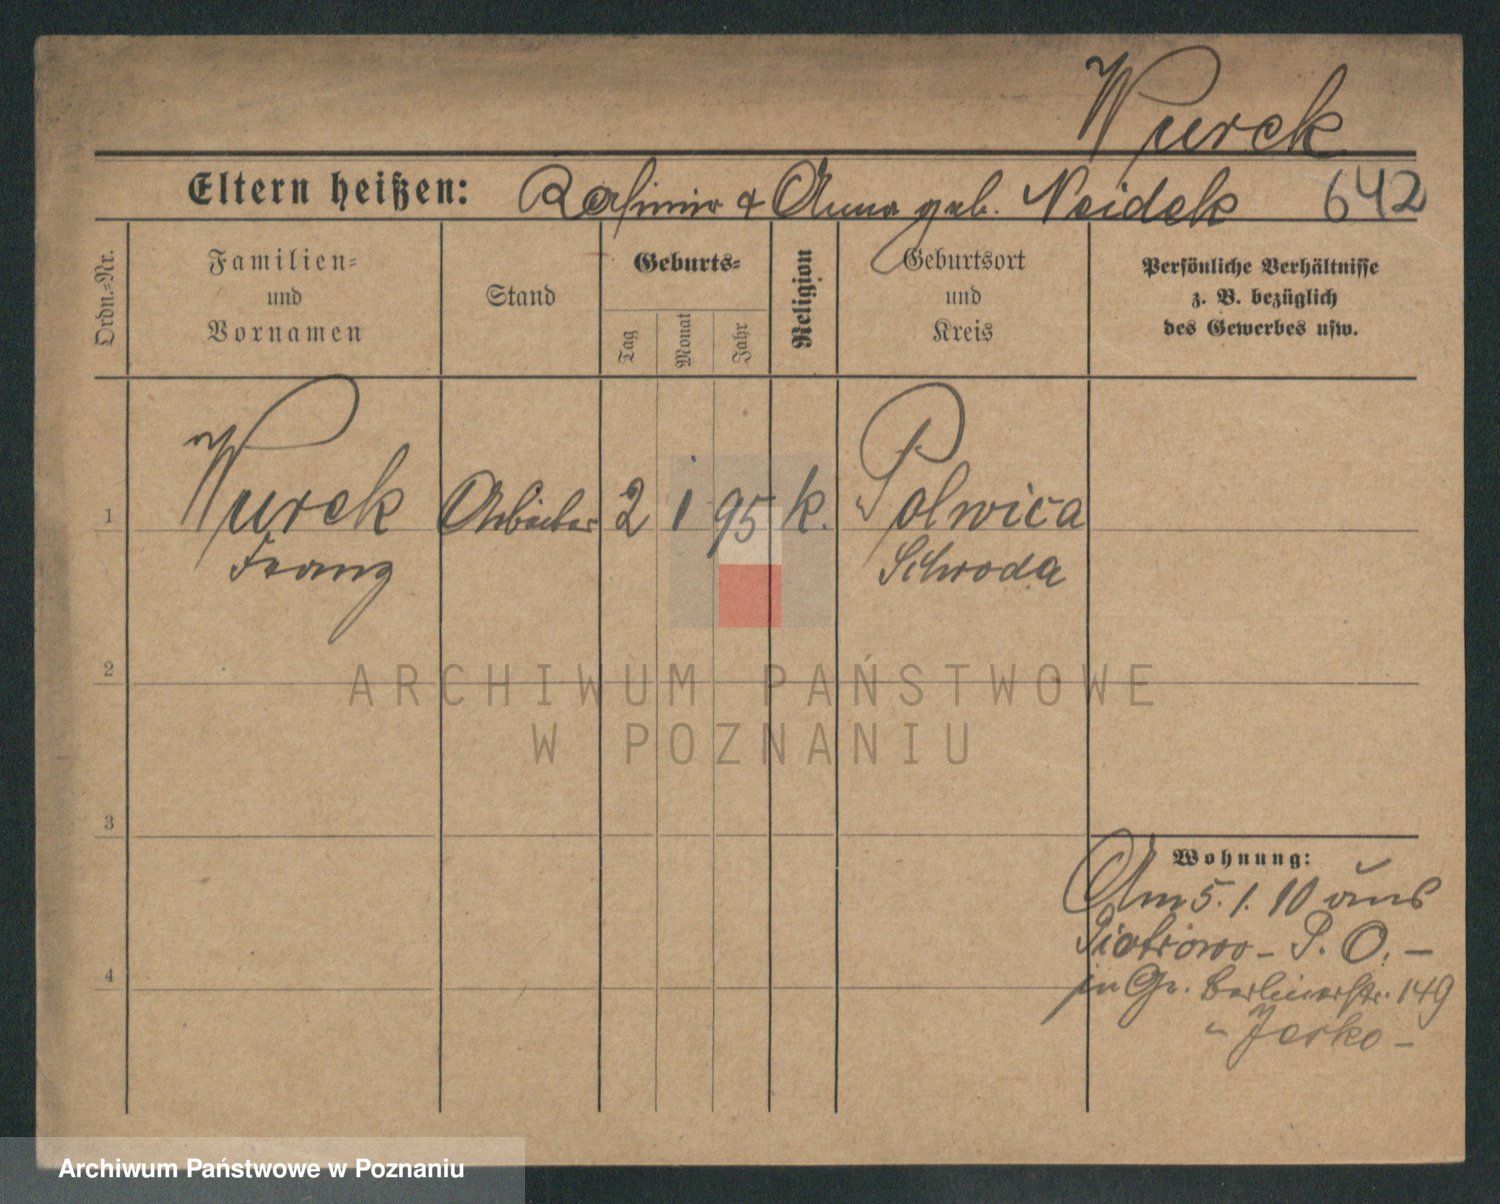 Wurek
Eltern heißen: Kasimir & Anna geb. Neidek 642
Ordn.-Nr.
Familien-
und
Vornamen
Stand
Geburts-
Tag
Monat
Jahr
Religion
Geburtsort
und
Kreis
Persönliche Verhältnisse
z. B. bezüglich
des Gewerbes usw.
1 Wurek Arbeiter 2 1 95 k. Polwica
Franz Schroda
2
ARCHIWUM PAŃSTWOWE
W POZNANIU
3
Wohnung:
Am 5. 1. 10 aus
Piotrowo - P. O. -
in Gr. Berlinerstr. 149
4
Archiwum Państwowe w Poznaniu